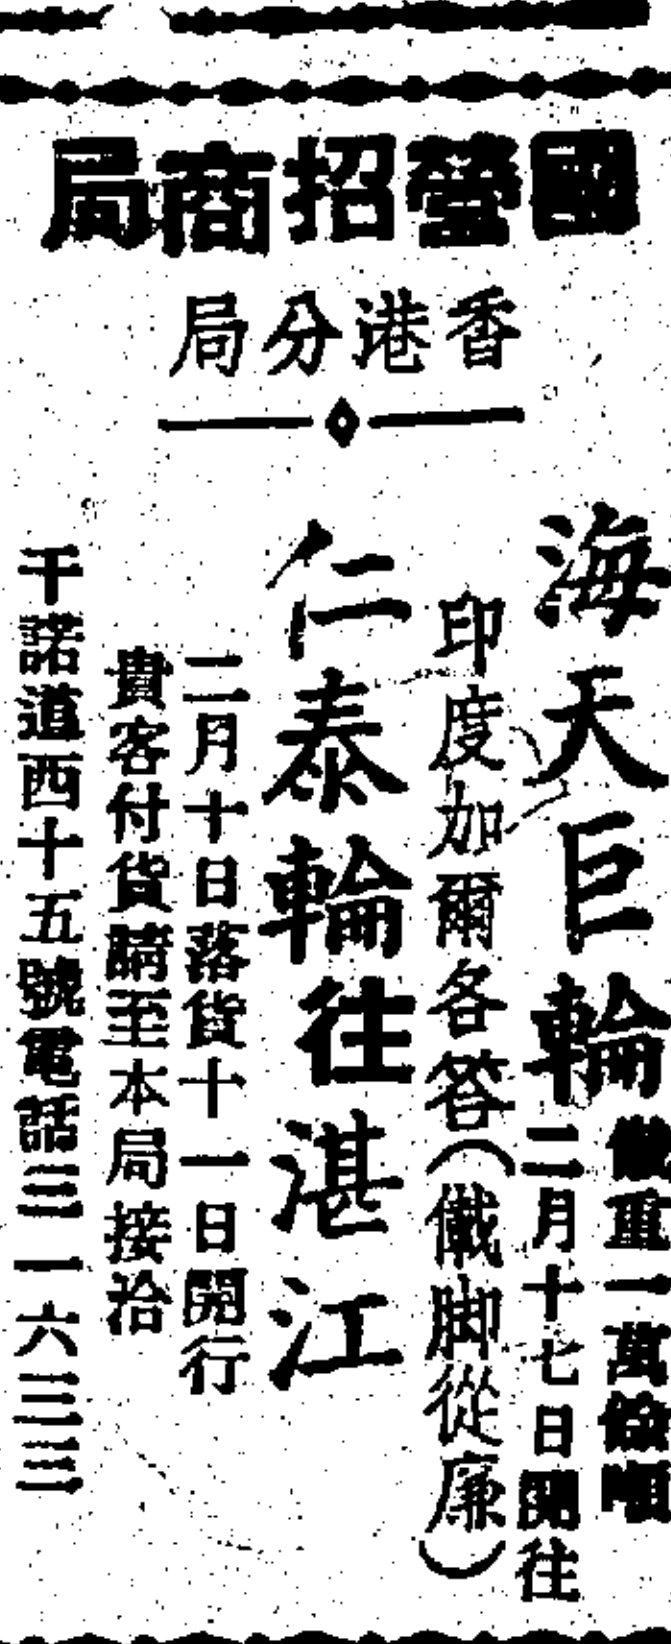 國營招商局
香港分局
海天巨輪
儎重一萬餘噸
二月十七日開往
印度加爾各答（儎脚從廉）
仁泰輪往湛江
二月十日落貨十一日開行
貴客付貨請至本局接洽
干諾道西十五號電話三一六三三